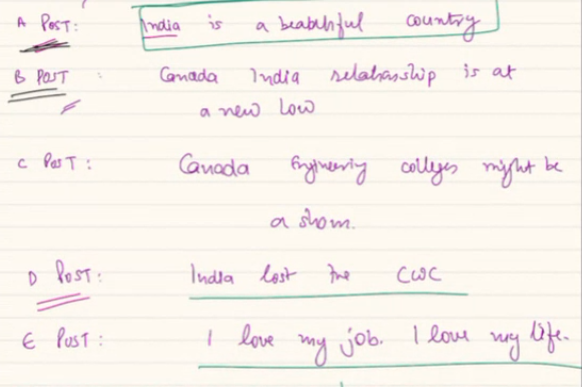 A POST: India is a beautiful country
B POST : Canada India relationship is at
a new low
C POST : Canada Engineering colleges might be
a sham.
D POST : India lost the CWC
E POST : I love my job. I love my life.